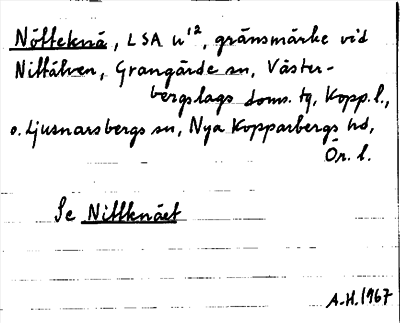 Nötteknä, LSA u¹², gränsmärke vid
Nittälven, Grangärde sn, Väster-
bergslags doms. tg, Kopp. l.,
o. Ljusnarsbergs sn, Nya Kopparbergs hd,
Ör. l.
Se Nittknäet
A.H. 1967